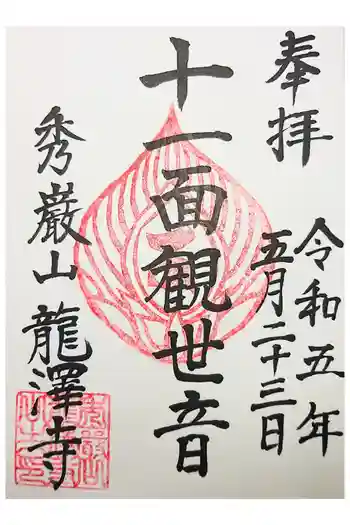 奉拝
令和五年
五月二十三日
十一面観世音
秀巌山
龍澤寺